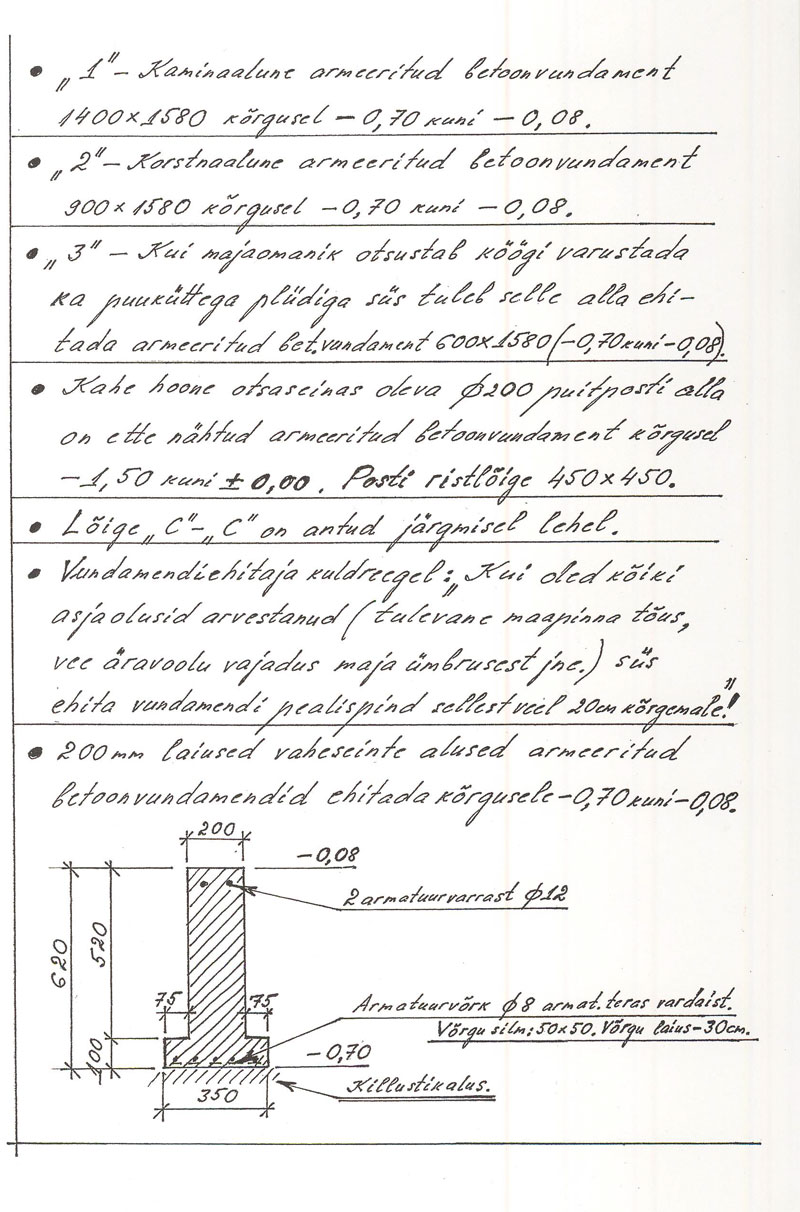 • „1" – Kaminaalune armeeritud betoonvundament
1400×1580 kõrgusel – 0,70 kuni – 0,08.
• „2" – Korstnaalune armeeritud betoonvundament
900×1580 kõrgusel –0,70 kuni –0,08.
• „3" – Kui majaomanik otsustab köögi varustada
ka puuküttega plüdiga süs tuleb selle alla ehi-
tada armeeritud bet.vundament 600×1580 (–0,70 kuni –0,08).
• Kahe hoone otsaseinas oleva ϕ200 puitposti alla
on ette nähtud armeeritud betoonvundament kõrgusel
–1,50 kuni ±0,00. Posti ristlõige 450×450.
• Lõige „C"–„C" on antud järgmisel lehel.
• Vundamendiehitaja kuldreegel: „Kui oled kõiki
asjaolusid arvestanud (tulevane maapinna tõus,
vee äravoolu vajadus maja ümbrusest jne.) süs
ehita vundamendi pealispind sellest veel 20cm kõrgemale!"
• 200mm laiused vaheseinte alused armeeritud
betoonvundamendid ehitada kõrgusele –0,70 kuni –0,08.
200
–0,08
2 armatuurvarrast ϕ12
620
520
75
75
Armatuurvõrk ϕ8 armat.teras vardaist.
Võrgu silm: 50×50. Võrgu laius – 30cm.
100
–0,70
Killustikalus.
350